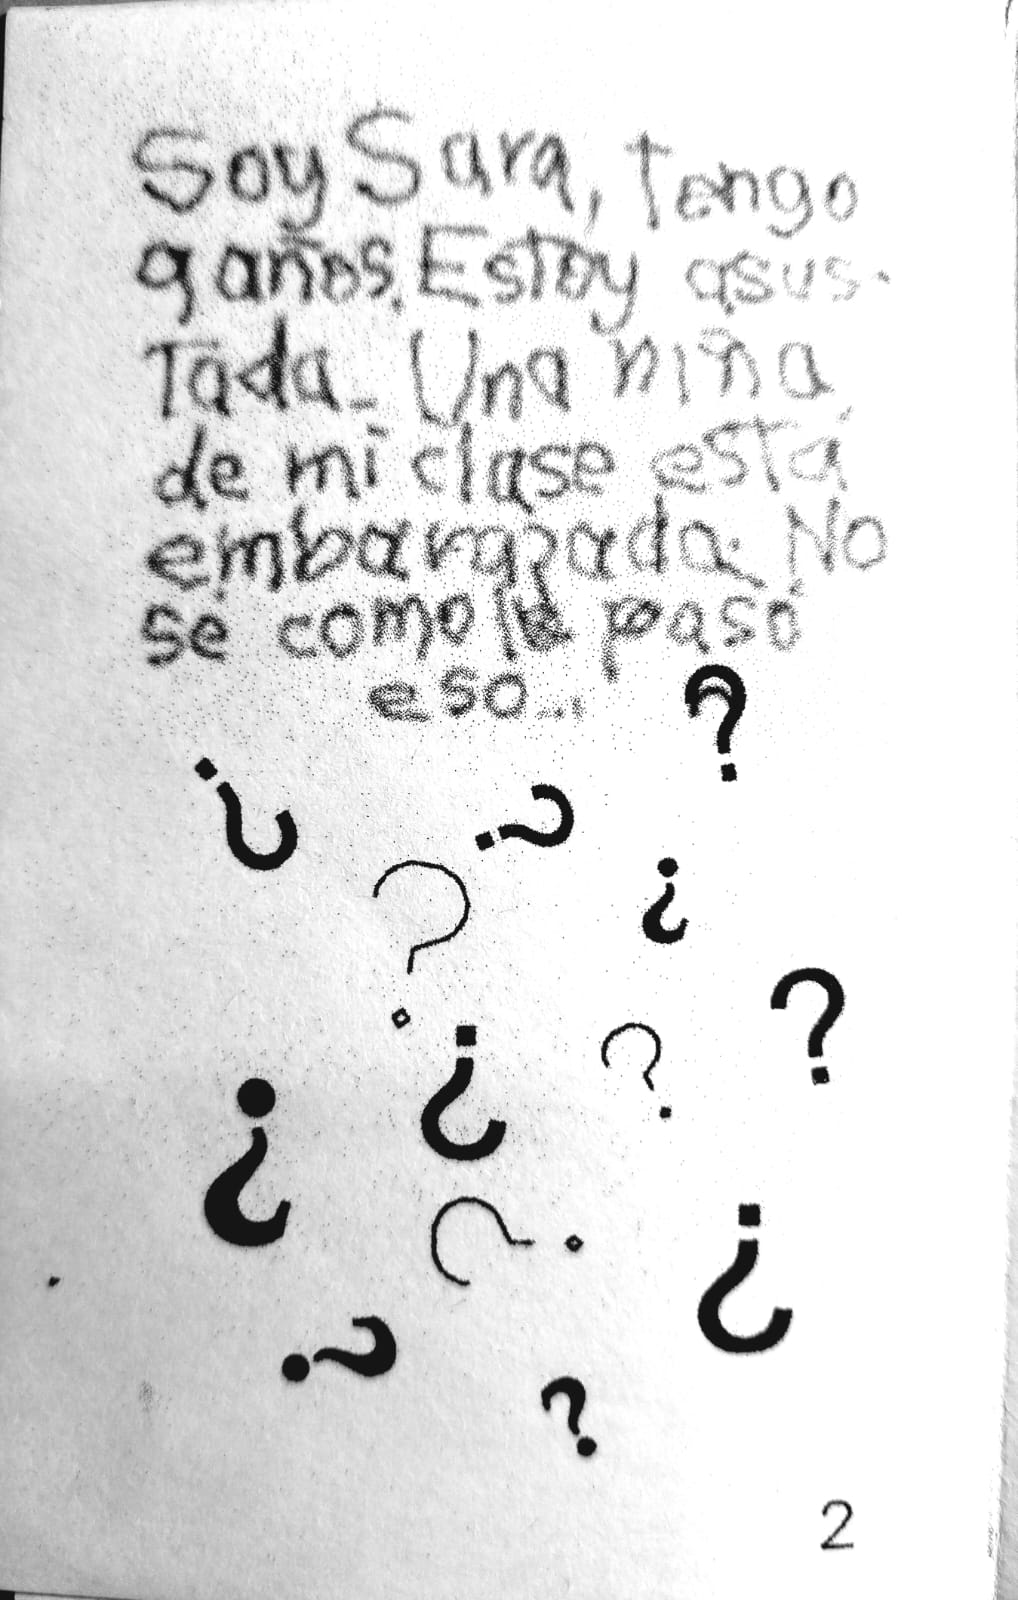 Soy Sara, Tengo
9 años. Estoy asus-
Tada. Una niña
de mi clase está
embarazada. No
sé como le pasó
eso...
?
¿
?
?
¿
?
?
¿
¿
?
¿
?
?
2